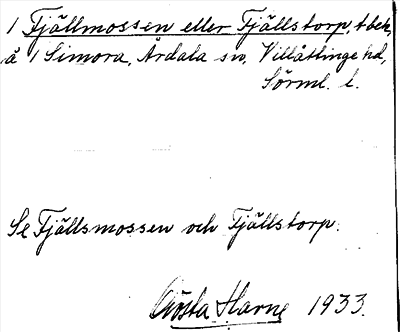 1 Fjällmossen eller Fjällstorp, tbek,
å 1 Simora, Årdala sn, Villåttinge hd,
Sörml. l.
Se Fjällsmossen och Fjällstorp.
Gösta Harne 1933.